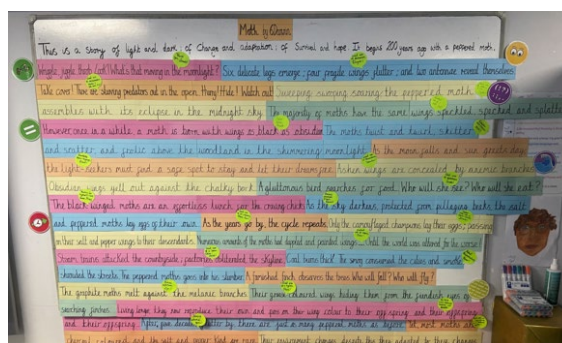 Moth by Qeran
This is a story of light and dark; of change and adaptation; of survival and hope. It begins 200 years ago with a peppered moth.
Wriggle, jiggle, What's that moving in the moonlight? Six delicate legs emerge; four fragile wings flutter; and two antennae reveal themselves.
Take cover! There are starving predators out in the open. Hurry! Hide! Watch out! Swooping swooping soaring: the peppered moth
assembles with its eclipse in the midnight sky. The majority of moths have the same wings: speckled, specked and splatte
However once in a while a moth is born with wings as black as obsidian. The moths twist and twirl, skitter
and scatter and frolic above the woodland in the shimmering moonlight. As the moon falls and sun greets day,
the light-seekers must find a safe spot to stay and let their dreams Ashen wings are concealed by anemic branches.
Obsidian wings yell out against the chalky bark. A gluttonous bird searches for food. Who will she see? Who will she eat?
The black winged moths are an effortless lunch for the craving chicks. As the sky darkens, protected from pillaging beaks the salt
and pepper moths lay eggs of their own. As the years go by, the cycle repeats. Only the camouflaged champions lay their eggs; passing
on their salt and pepper wings to their descendants. Numerous of the moths had and painted wings. Until the world was altered for the worse!
Steam trains attacked the countryside; factories obstructed the skyline. Coal trains The smog consumed the cities and smoke
shrouded the streets. The peppered moths goes into his slumber. A famished finch observes the trees. Who will fall? Who will fly?
The graphite moths melt against the melanic branches. Their coloured wings hiding them from the fiendish eyes of
searching finches. Living longer they now reproduce their own and pass on their wing colour to their offspring and their offspring
and their offspring. After, five decades later by, there are just as many peppered moths as before. at most moths are